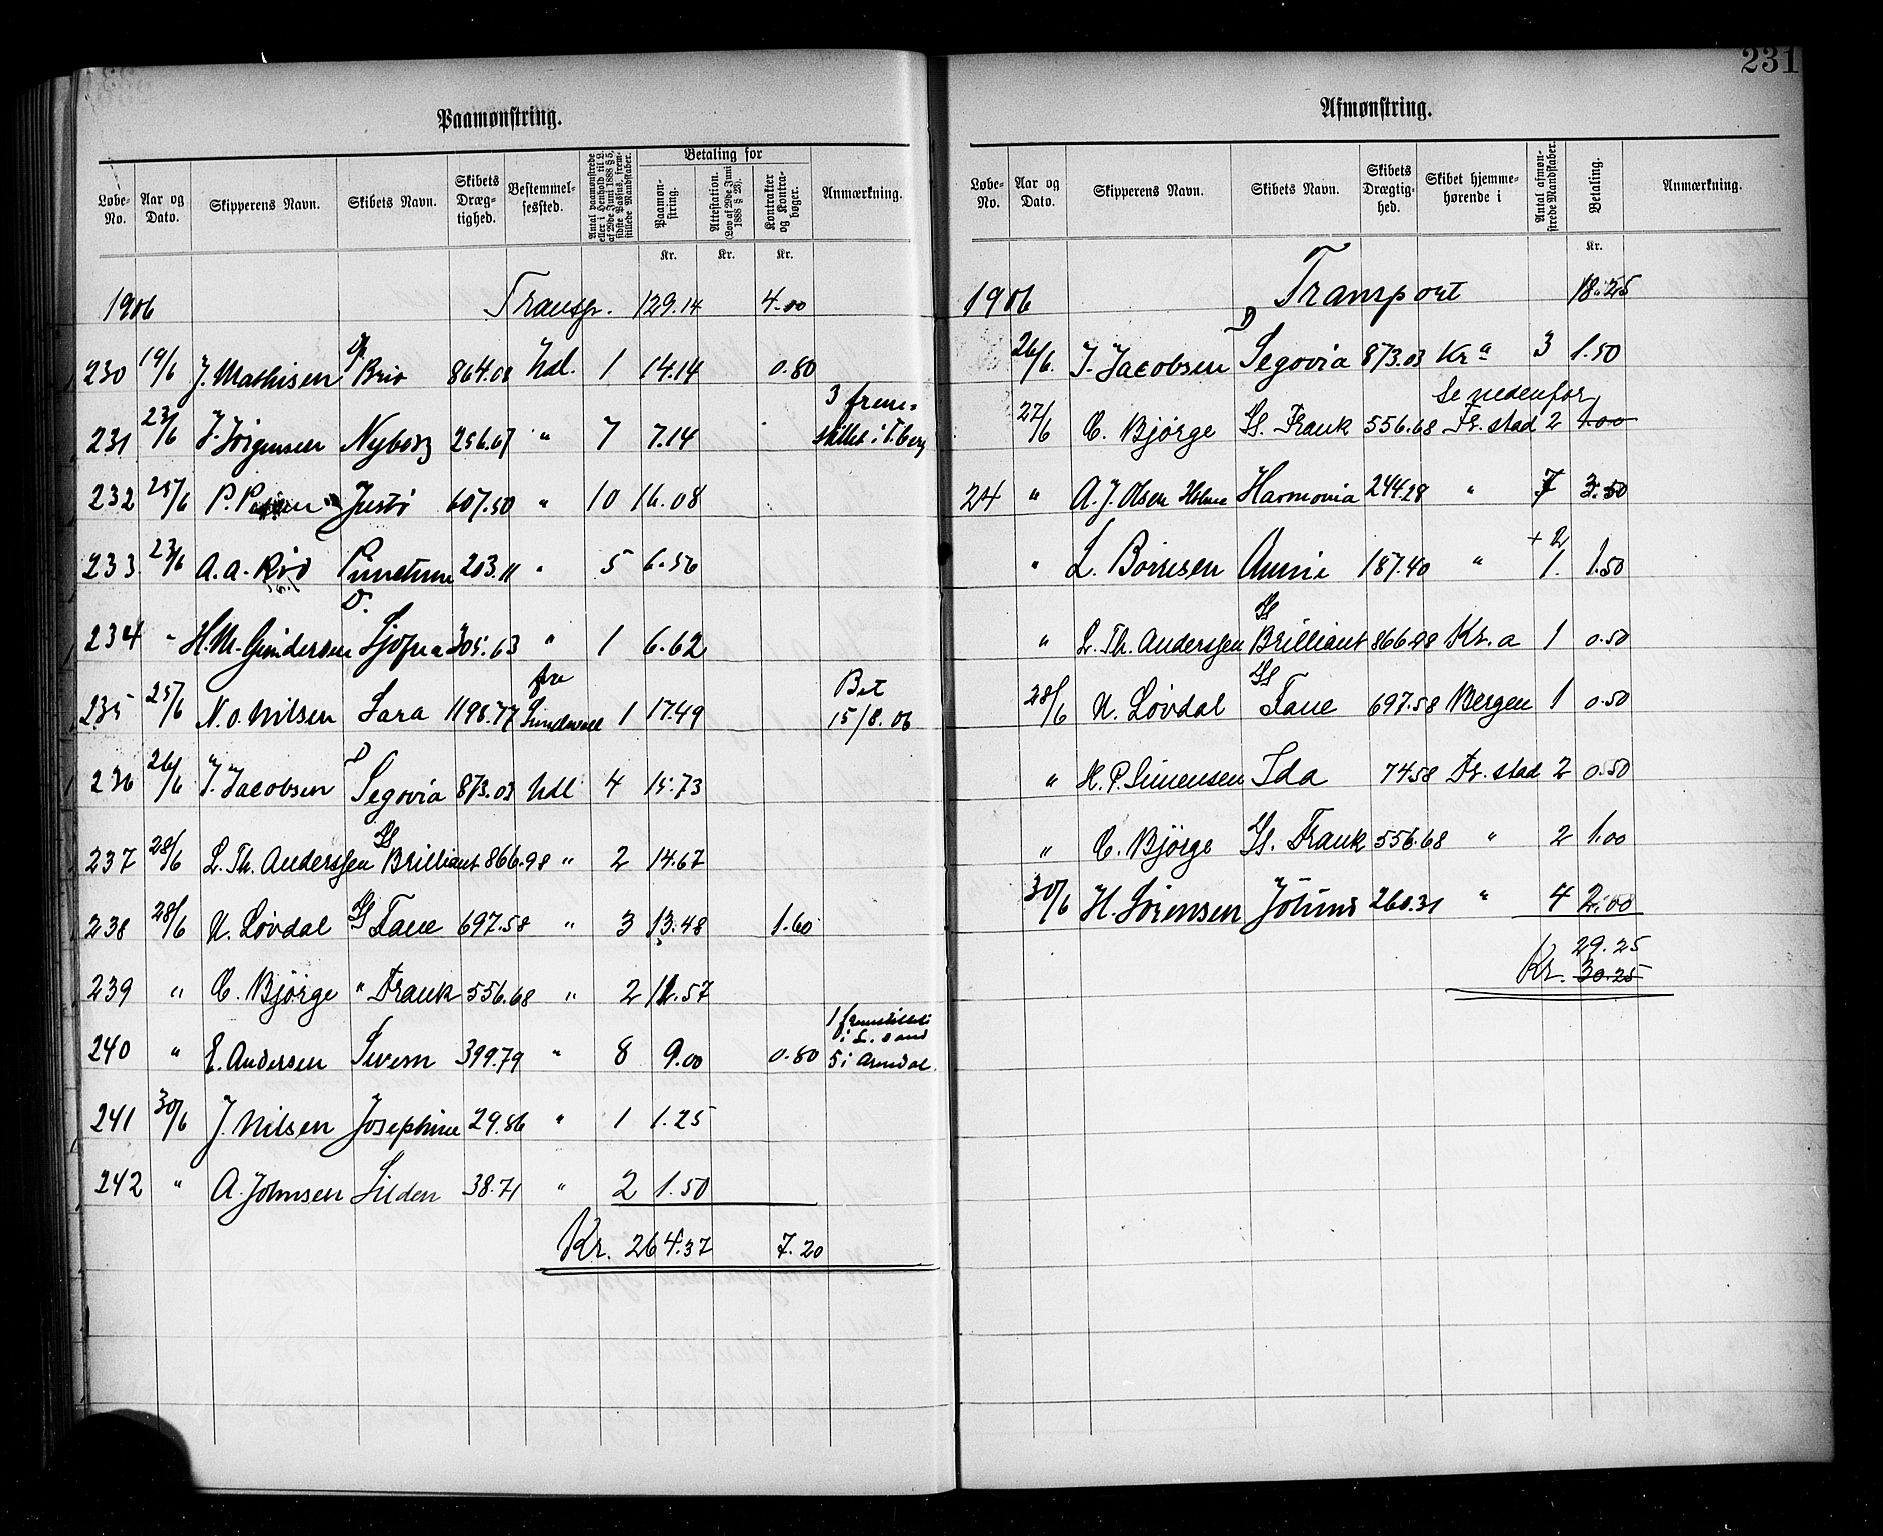 231
Paamønstring.
Løbe-No. | Aar og Dato. | Skipperens Navn. | Skibets Navn. | Skibets Dræg-tighed. | Bestemmel-sessted. | Antal paamønstrede eller i Henhold til L. af 29de Juni 1888 § 5, sidste Passus, frem-stillede Mandskaber. | Betaling for | Paamøn-string. | Attestation. (Lov af 29de Juni 1888 § 23). | Kontrakter og Kontra-bøger. | Anmærkning.
Kr. | Kr. | Kr.
1906 | Transp. | 129.14 | 4.00
230 | 19/6 | J. Mathisen | Brio | 864.08 | Udl. | 1 | 14.14 | 0.80
231 | 23/6 | J. Jörgensen | Nyborg | 256.67 | " | 7 | 7.14 | 3 frem-stillet i T.berg
232 | 25/6 | Justö | 607.50 | " | 10 | 16.08
233 | 23/6 | A. A. | 203.11 | " | 5 | 6.56
234 | - | H. M. Gundersen | D. Sjofna | 305.63 | " | 1 | 6.62
235 | 25/6 | N. O. Nilsen | Sara | 1198.77 | fra | 1 | 17.49 | Bet 15/8.06
236 | 26/6 | J. Jacobsen | D Segovia | 873.03 | Udl | 4 | 15.73
237 | 28/6 | L. Th. Anderssen | Ss Brilliant | 866.98 | " | 2 | 14.67
238 | 28/6 | N. Løvdal | Ss Fane | 697.58 | " | 3 | 13.48 | 1.60
239 | " | C. Bjørge | " Frank | 556.68 | " | 2 | 12.57
240 | " | E. Andersen | Svem | 399.79 | " | 8 | 9.00 | 0.80 | 1 fremstillet i L. sand 5 i Arendal.
241 | 30/6 | J. Nilsen | Josephine | 29.86 | " | 1 | 1.25
242 | " | A. Johnsen | Silden | 38.71 | " | 2 | 1.50
Kr. 264.37 | 7.20
Afmønstring.
Løbe-No. | Aar og Dato. | Skipperens Navn. | Skibets Navn. | Skibets Drægtig-hed. | Skibet hjemme-hørende i | Antal afmøn-strede Mandskaber. | Betaling. | Anmærkning.
Kr.
1906 | Transport | 18.25
26/6. | J. Jacobsen | D Segovia | 873.03 | Kra | 3 | 1.50
Se nedenfor
27/6 | C. Bjørge | Ss. Frank | 556.68 | Fr. stad | 2 | 1.00
24 | " | A. J. Olsen Holme | Harmonia | 244.28 | " | 7 | 3.50
" | L. Börresen | Anni | 187.40 | " | + 2 1. | 1.50
" | L. Th. Anderssen | Ss Brilliant | 866.98 | Kr.a | 1 | 0.50
28/6 | N. Løvdal | Ss Fane | 697.58 | Bergen | 1 | 0.50
" | H. P. Simensen | Ida | 74.58 | Fr. stad | 2 | 0.50
" | C. Bjørge | Ss. Frank | 556.68 | " | 2 | 1.00
30/6 | H. Sörensen | 260.31 | " | 4 | 2.00
29.25
Kr. 30.25